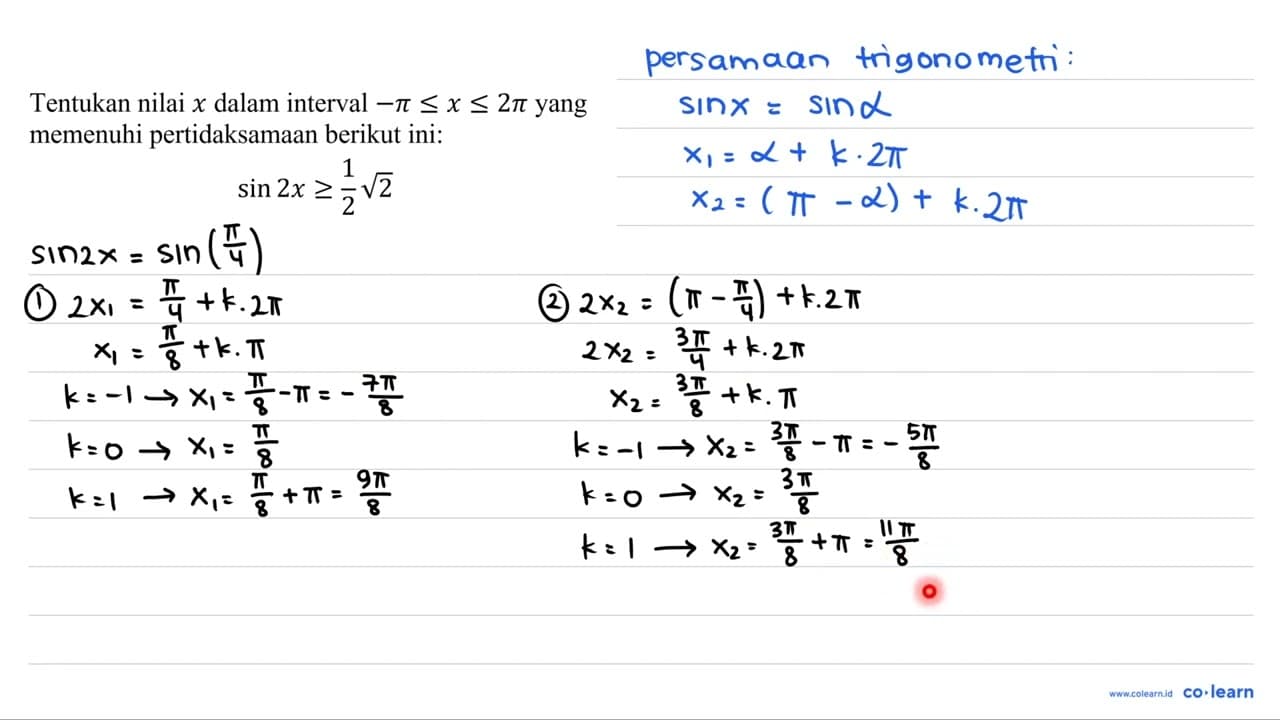 Tentukan nilai x dalam interval −π ≤ x ≤ 2π yang
memenuhi pertidaksamaan berikut ini:
sin 2x ≥ 1/2 √2
persamaan trigonometri:
sin x = sin α
x₁ = α + k . 2π
x₂ = (π − α) + k . 2π
sin 2x = sin (π/4)
① 2x₁ = π/4 + k . 2π
x₁ = π/8 + k . π
k = −1 → x₁ = π/8 − π = − 7π/8
k = 0 → x₁ = π/8
k = 1 → x₁ = π/8 + π = 9π/8
② 2x₂ = (π − π/4) + k . 2π
2x₂ = 3π/4 + k . 2π
x₂ = 3π/8 + k . π
k = −1 → x₂ = 3π/8 − π = − 5π/8
k = 0 → x₂ = 3π/8
k = 1 → x₂ = 3π/8 + π = 11π/8
www.colearn.id co·learn